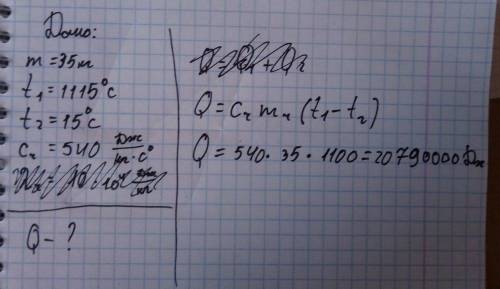 Дано:
m = 35т
t₁ = 1115°c
t₂ = 15°c
cч = 540 Дж/кг·c°
Q - ?
Q = cч mч (t₁ - t₂)
Q = 540 · 35 · 1100 = 20790000 Дж